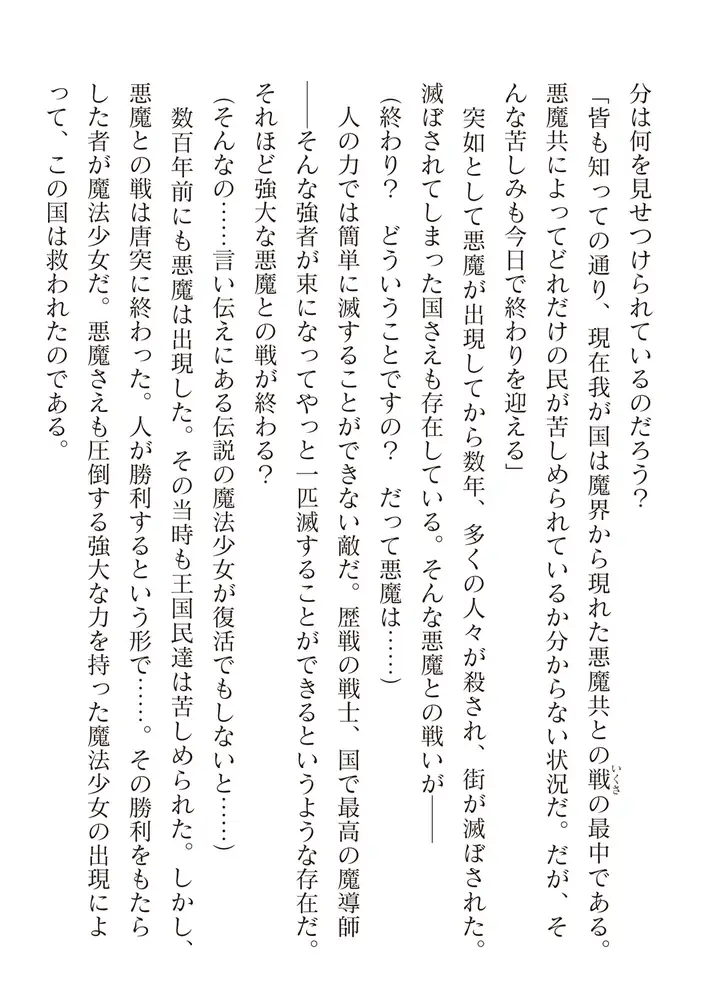 分は何を見せつけられているのだろう？
「皆も知っての通り、現在我が国は魔界から現れた悪魔共との戦の最中である。
いくさ
悪魔共によってどれだけの民が苦しめられているか分からない状況だ。だが、そ
んな苦しみも今日で終わりを迎える」
突如として悪魔が出現してから数年、多くの人々が殺され、街が滅ぼされた。
滅ぼされてしまった国さえも存在している。そんな悪魔との戦いが――
（終わり？　どういうことですの？　だって悪魔は……）
人の力では簡単に滅することができない敵だ。歴戦の戦士、国で最高の魔導師
――そんな強者が束になってやっと一匹滅することができるというような存在だ。
それほど強大な悪魔との戦が終わる？
（そんなの……言い伝えにある伝説の魔法少女が復活でもしないと……）
数百年前にも悪魔は出現した。その当時も王国民達は苦しめられた。しかし、
悪魔との戦は唐突に終わった。人が勝利するという形で……。その勝利をもたら
した者が魔法少女だ。悪魔さえも圧倒する強大な力を持った魔法少女の出現によ
って、この国は救われたのである。